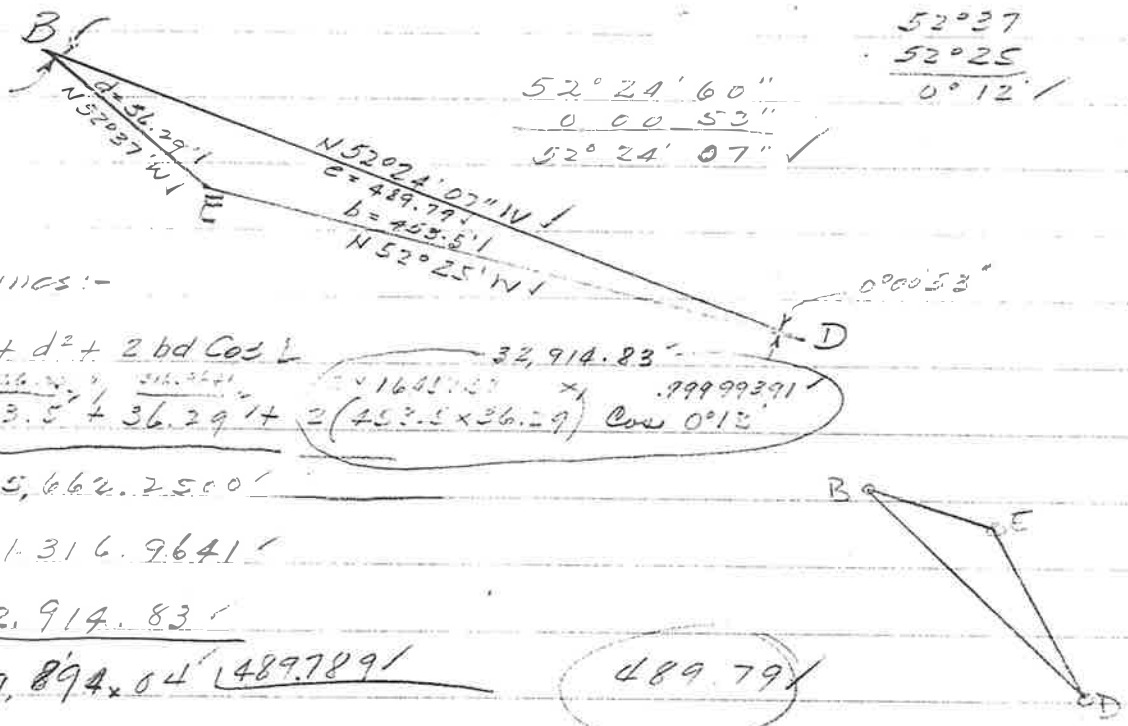 52°37
52°25
0°12'
52° 24' 60"
0 00 53"
52° 24' 07"
B
d=36.29'
N52°37'W
E
N52°24'07"W
e = 489.79
b = 453.5'
N52°25'W
0°00'53"
D
+ d² + 2bd Cos
32,914.83
× .99999391
3.5² + 36.29² + 2(453.5×36.29) Cos 0°12'
5,662.2500
1 316.9641
2,914.83
9,894.04 489.789
489.79
B
E
D